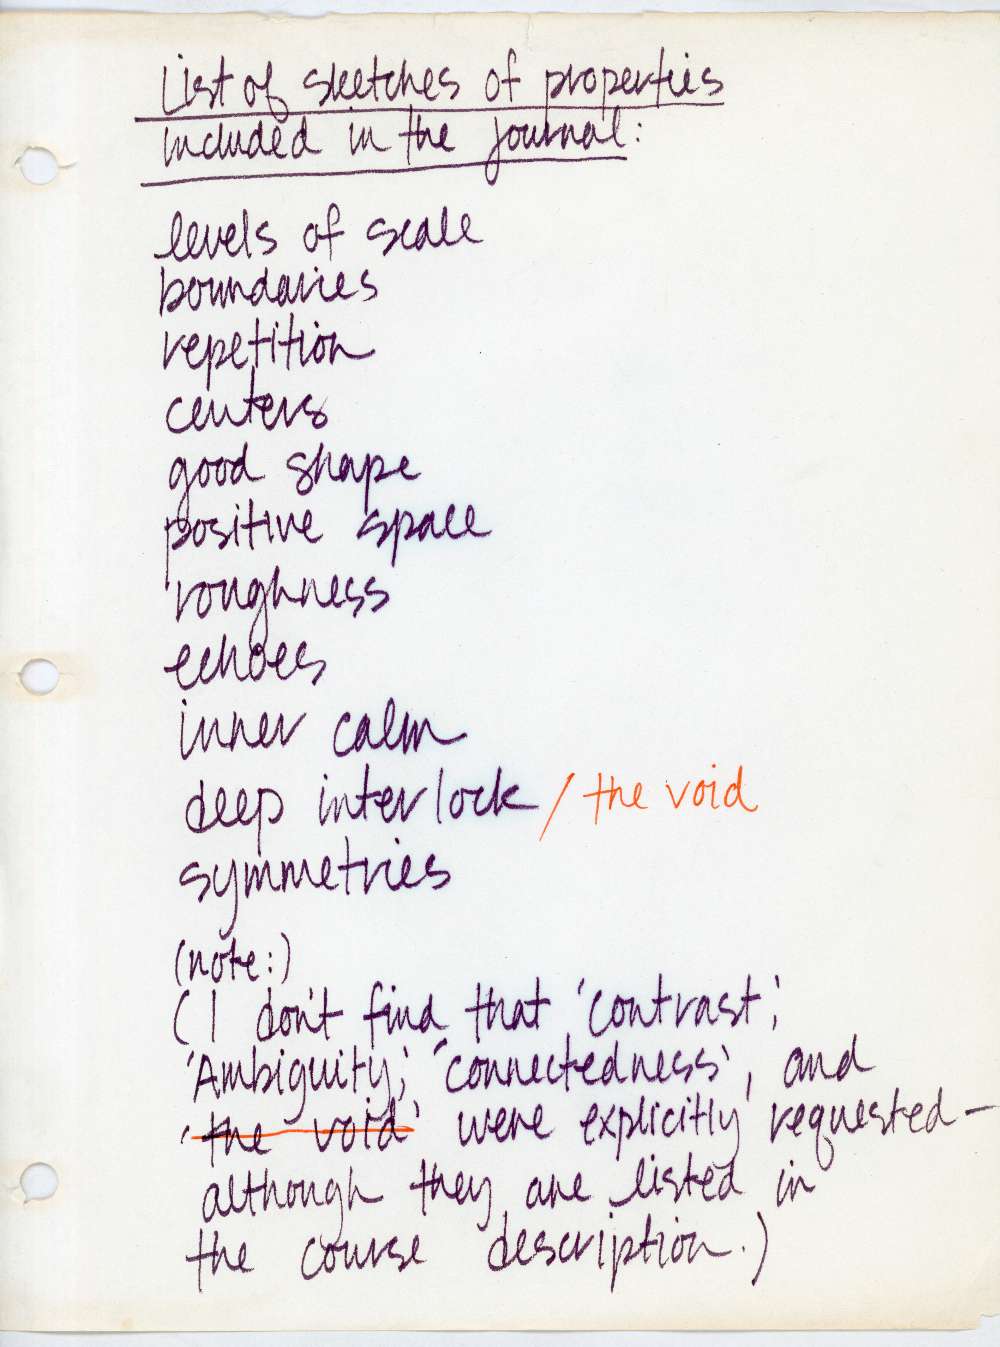 List of sketches of properties
included in the journal:
levels of scale
boundaries
repetition
centers
good shape
positive space
roughness
echoes
inner calm
deep interlock / the void
symmetries
(note:)
( I don't find that 'contrast,'
'Ambiguity,' 'connectedness', and
'the void' were explicitly requested—
although they are listed in
the course description.)